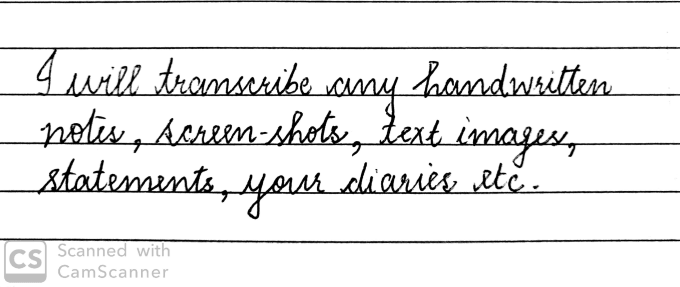 I will transcribe any handwritten
notes, screen-shots, text images,
statements, your diaries etc.
CS Scanned with
CamScanner